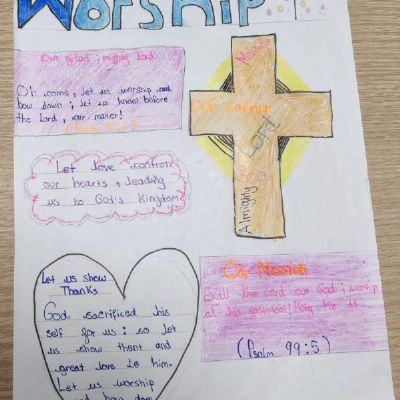 WORSHIP
Our great & mighty lord
Oh come, let us worship and
bow down; let us kneel before
the Lord, our maker!
Messiah
Our saviour
Lord
God
Almighty
Let love confront
our hearts, leading
us to God's Kingdom
Let us show
Thanks
God sacrificed his
self for us; so let
us show thanks and
great love to him.
Let us worship
and bow down
Our Messiah
the Lord our God; worship
at his footstool! Holy
(Psalm 99:5)